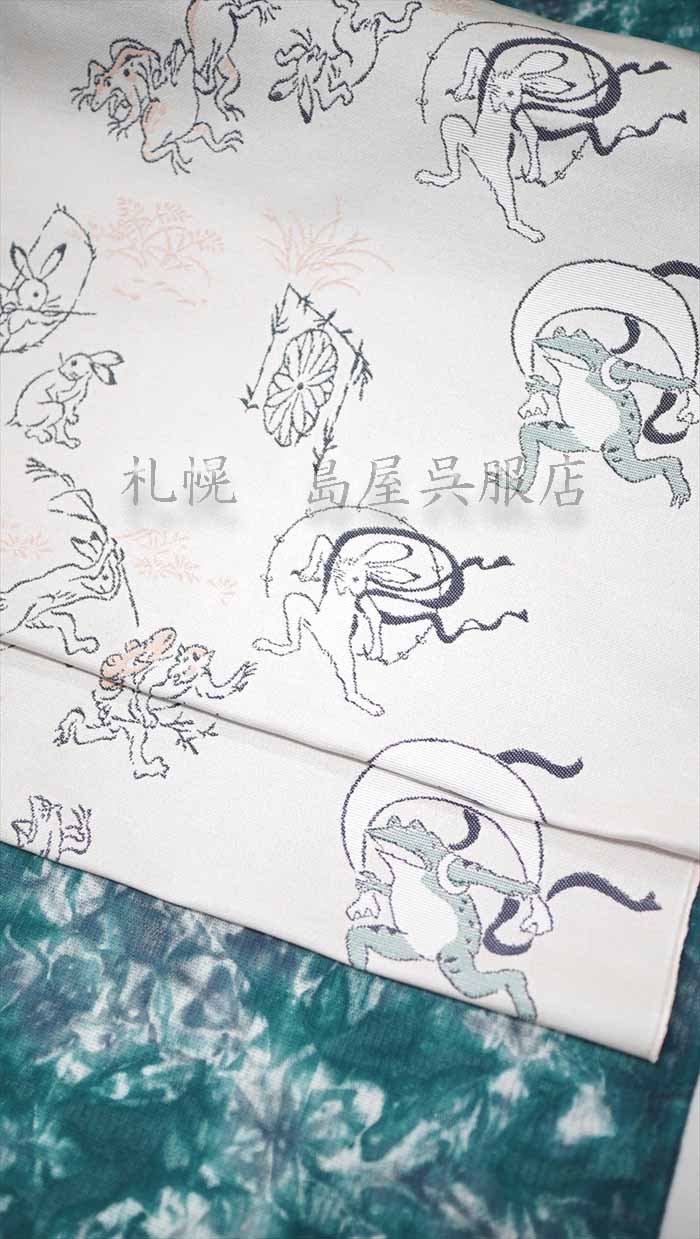 札幌　島屋呉服店